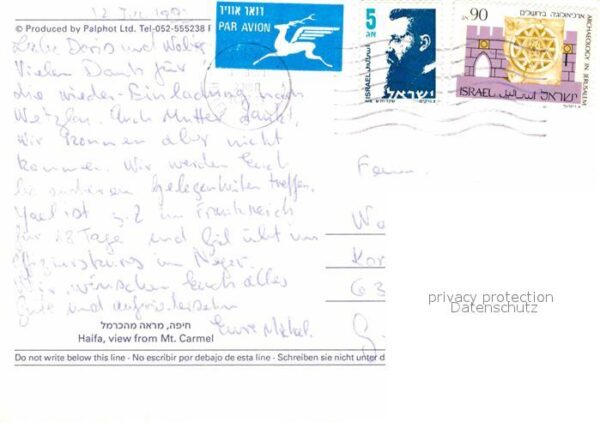 © Produced by Palphot Ltd. Tel-052-555238
דואר אוויר
PAR AVION
5
אג
ISRAEL إسرائيل
ישראל
90
אג
ארכיאולוגיה בירושלים
ARCHAEOLOGY IN JERUSALEM
ISRAEL إسرائيل ישראל
Liebe Doris und
Vielen Dank für
die wieder Einladung nach
Wetzlar. Auch Mutter dankt.
Wir können aber nicht
kommen. Wir werden Euch
bei anderen Gelegenheiten treffen.
Yael ist z.Z in Frankreich
für 18 Tage und Gil übt im
im Negev.
Wir wünschen Euch alles
Gute und aufwiedersehen
Eure Michal.
Fam.
We
Kor
63
privacy protection
Datenschutz
חיפה, מראה מהכרמל
Haifa, view from Mt. Carmel
Do not write below this line - No escribir por debajo de esta linea - Schreiben sie nicht unter d